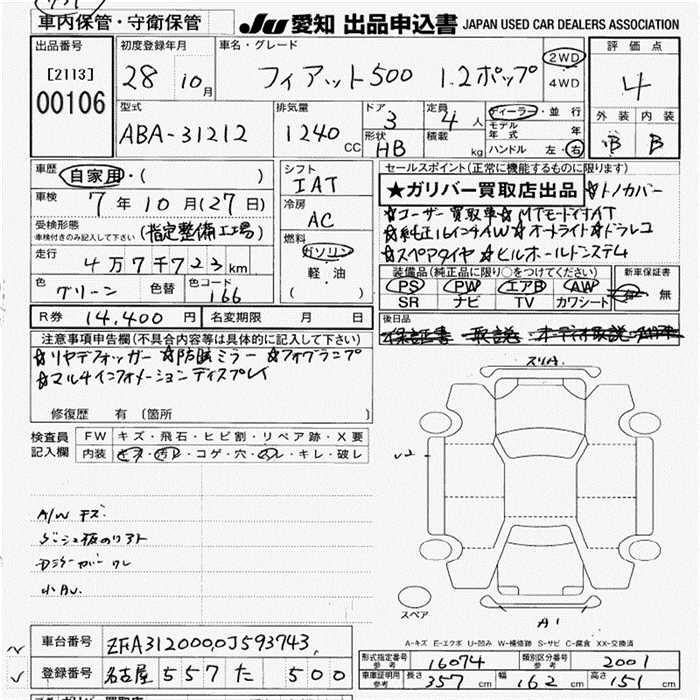 車内保管・守衛保管
JU 愛知 出品申込書 JAPAN USED CAR DEALERS ASSOCIATION
出品番号
[2113]
00106
初度登録年月
28 10月
車名・グレード
フィアット500 1.2ポップ
2WD
4WD
評価点
4
外装 内装
B B
型式
ABA-31212
排気量
1240 CC
ドア
3
形状
HB
定員
4 人
積載
kg
ディーラー・並行
モデル年式 年
ハンドル 左・右
車歴
自家用・( )
車検
7年10月(27日)
受検形態
車検付きのみ記入して下さい
(指定整備工場)
走行
4万7千723km
色
グリーン
色替
色コード
166
シフト
IAT
冷房
AC
燃料
ガソリン
軽・油
( )
セールスポイント(正常に機能するものに限ります)
★ガリバー買取店出品 ☆トノカバー
☆ユーザー買取車☆MTモード付AT
☆純正16インチAW☆オートライト☆ドラレコ
☆スペアタイヤ☆ヒルホールドシステム
装備品(純正品に限り○をつけてください)
PS PW エアB AW
SR ナビ TV カワシート
新車保証書
有 無
後日品
保証書 取説 オーディオ取説
R券 14,400円
名変期限 月 日
注意事項申告欄(不具合内容等は具体的に記入して下さい)
☆リヤデフォッガー☆防眩ミラー☆フォグランプ
☆マルチインフォメーションディスプレイ
修復歴 有(箇所 )
検査員記入欄
FW キズ・飛石・ヒビ割・リペア跡・X要
内装 キズ・汚れ・コゲ・穴・スレ・キレ・破レ
A/W キズ
小AU
スリA
A1
スペア
A-キズ E-エクボ U-凹み W-補修跡 S-サビ C-腐食 XX-交換済
車台番号 ZFA3120000J593743
登録番号 名古屋 557 た 500
形式指定番号
参考
16074
類別区分番号
参考
2001
車庫証明用
参考
長さ 357cm 幅 162cm 高さ 151cm